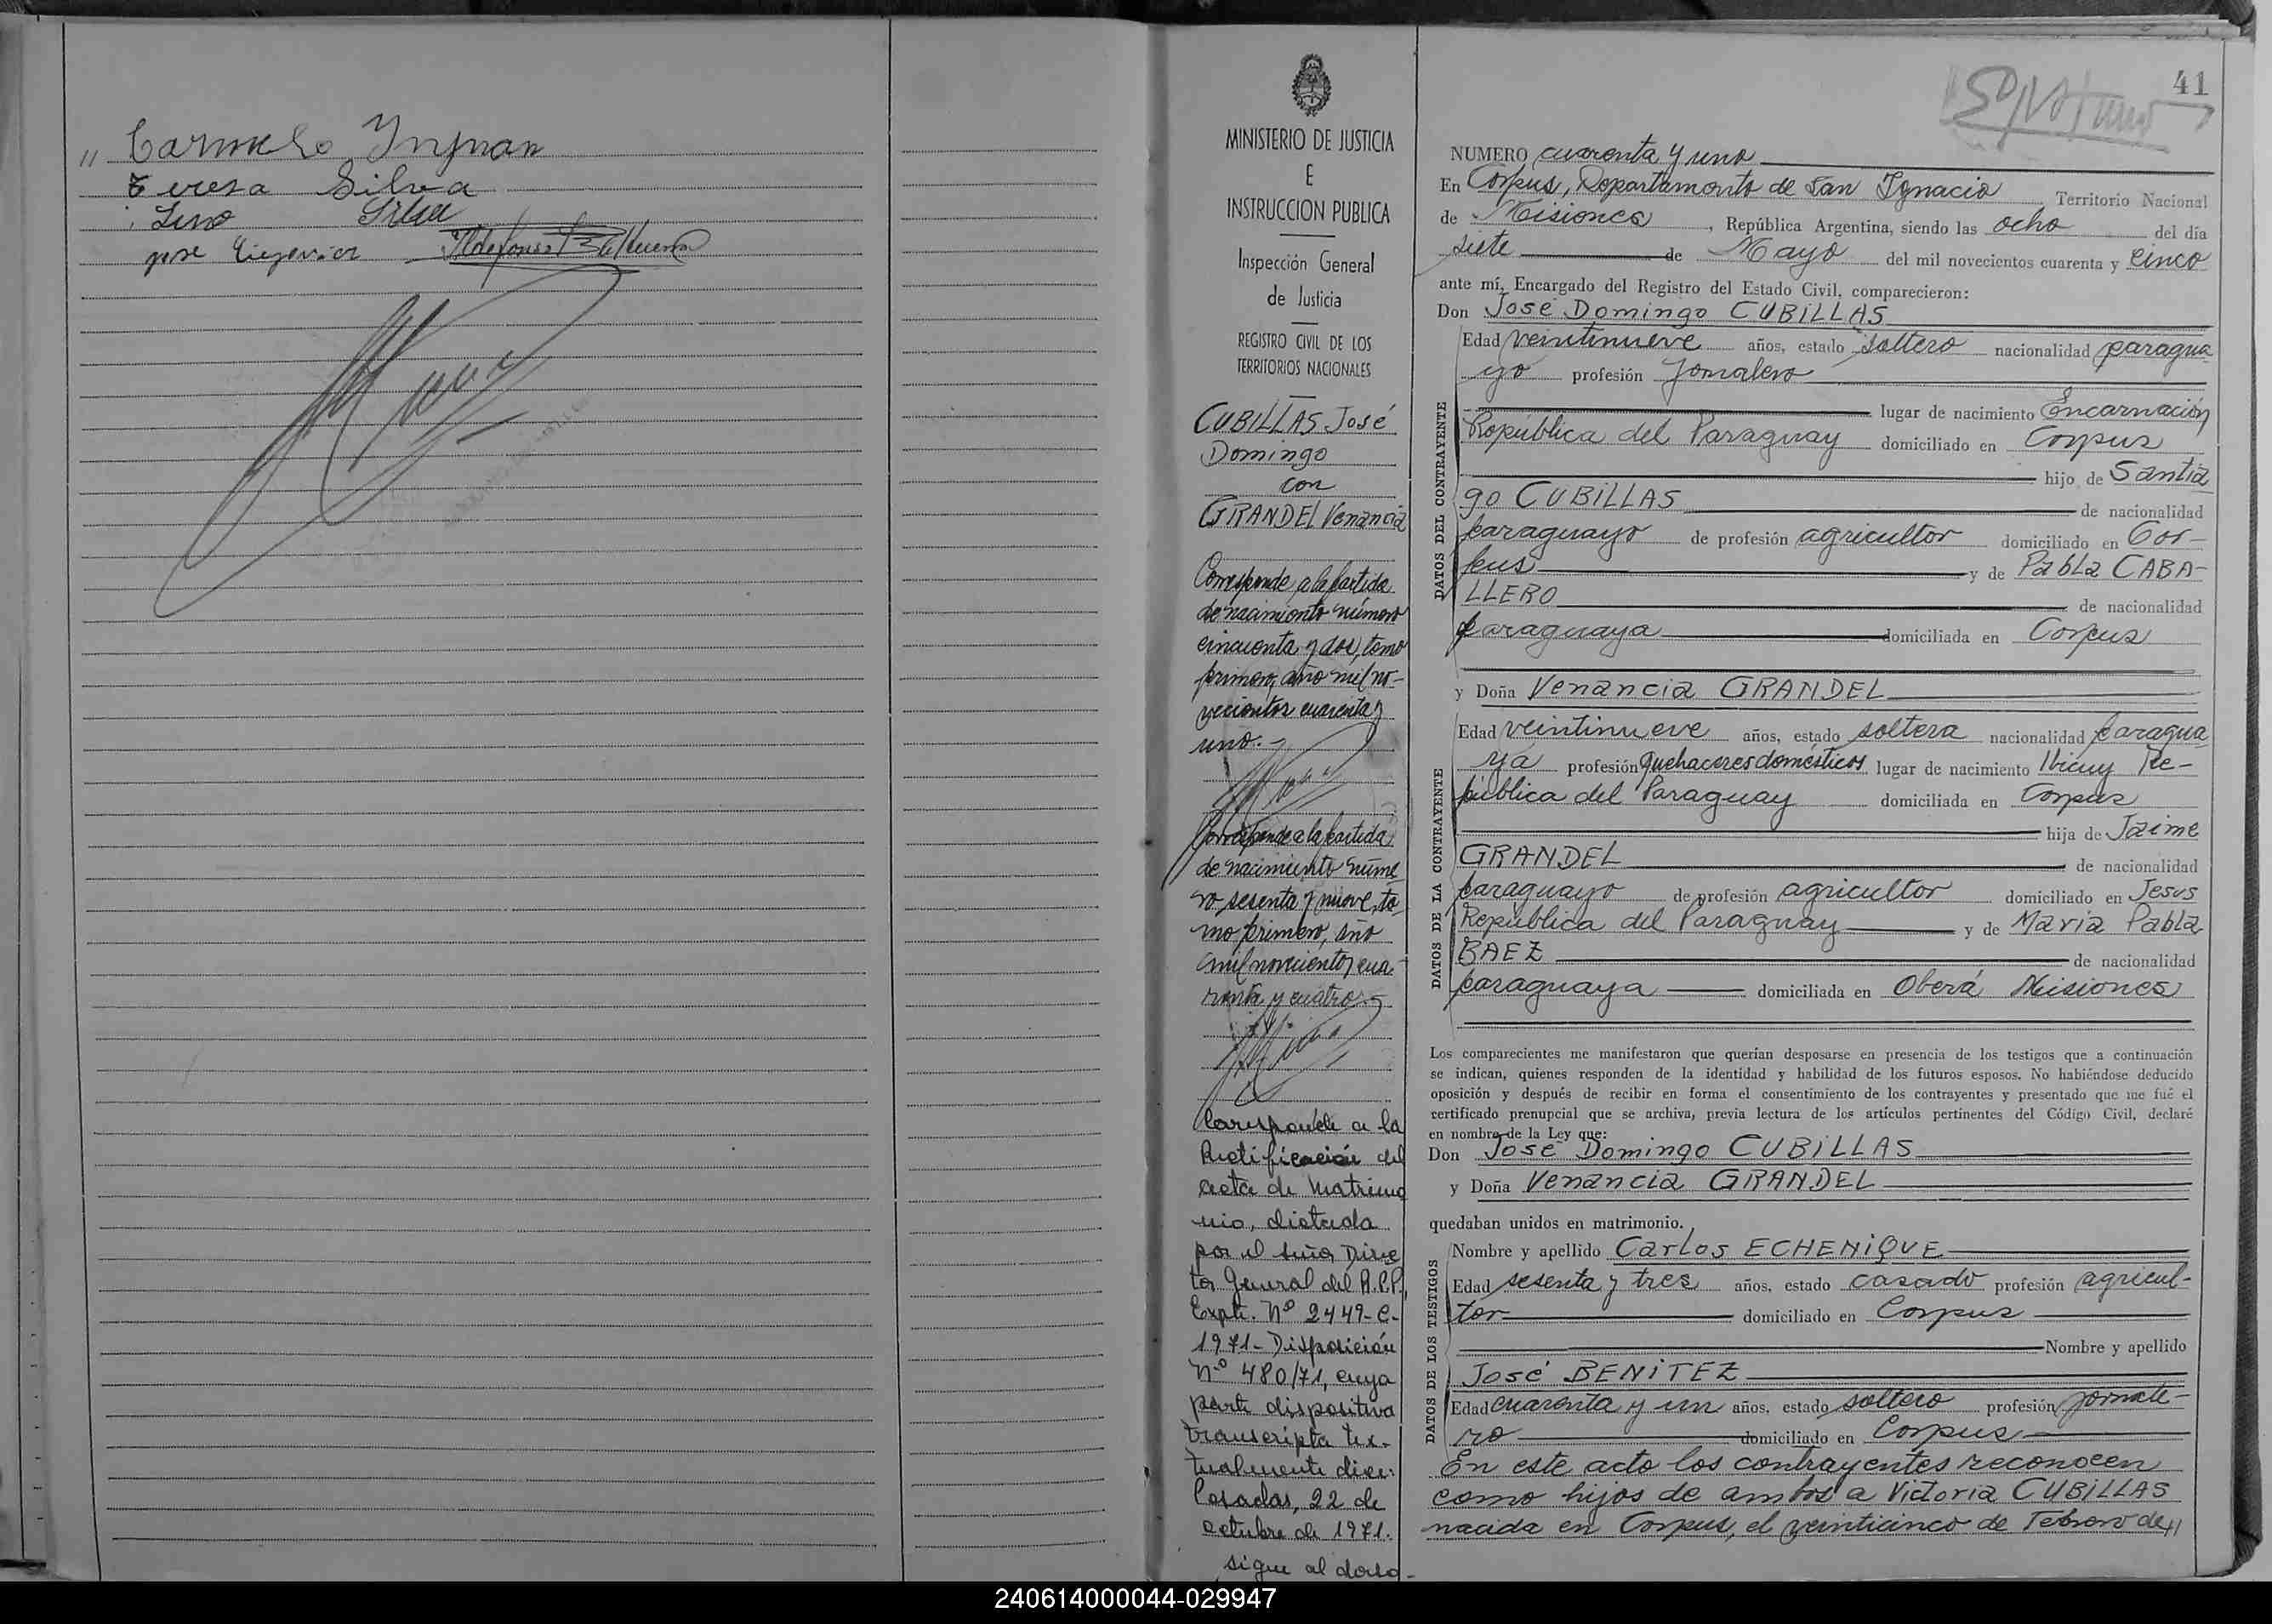 " Carmelo Ynfran
Teresa Silva
Lino Silva
jose
MINISTERIO DE JUSTICIA
E
INSTRUCCION PUBLICA
Inspección General
de Justicia
REGISTRO CIVIL DE LOS
TERRITORIOS NACIONALES
CUBILLAS José
Domingo
con
GRANDEL Venancia
Corresponde a la partida
de nacimiento número
cincuenta y dos, tomo
primero, año mil no-
vecientos cuarenta y
uno.-
Corresponde a la partida
de nacimiento núme
ro sesenta y nueve, to
mo primero, año
mil novecientos cua-
renta y cuatro.-
Corresponde a la
Rectificación del
acta de Matrimo
nio, dictada
por el señor Direc
tor General del R.P.P.,
Expte. Nº 2449-C-
1971- Disposición
Nº 480/71, cuya
parte dispositiva
transcripta tex-
tualmente dice:
Posadas, 22 de
octubre de 1971.
sigue al dorso-
41
NUMERO cuarenta y uno
En Corpus, Departamento de San Ignacio Territorio Nacional
de Misiones, República Argentina, siendo las ocho del día
siete de Mayo del mil novecientos cuarenta y cinco
ante mí, Encargado del Registro del Estado Civil, comparecieron:
Don José Domingo CUBILLAS
DATOS DEL CONTRAYENTE
Edad veintinueve años, estado soltero nacionalidad paragua
yo profesión Jornalero
lugar de nacimiento Encarnación
República del Paraguay domiciliado en Corpus
hijo de Santia
go CUBILLAS de nacionalidad
paraguayo de profesión agricultor domiciliado en Cor-
pus y de Pabla CABA-
LLERO de nacionalidad
paraguaya domiciliada en Corpus
y Doña Venancia GRANDEL
DATOS DE LA CONTRAYENTE
Edad veintinueve años, estado soltera nacionalidad paragua
ya profesión quehaceres domésticos lugar de nacimiento Ibicuy Re-
pública del Paraguay domiciliada en Corpus
hija de Jaime
GRANDEL de nacionalidad
paraguayo de profesión agricultor domiciliado en Jesus
República del Paraguay y de Maria Pabla
BAEZ de nacionalidad
paraguaya domiciliada en Oberá Misiones
Los comparecientes me manifestaron que querían desposarse en presencia de los testigos que a continuación
se indican, quienes responden de la identidad y habilidad de los futuros esposos. No habiéndose deducido
oposición y después de recibir en forma el consentimiento de los contrayentes y presentado que me fué el
certificado prenupcial que se archiva, previa lectura de los artículos pertinentes del Código Civil, declaré
en nombre de la Ley que:
Don José Domingo CUBILLAS
y Doña Venancia GRANDEL
quedaban unidos en matrimonio.
DATOS DE LOS TESTIGOS
Nombre y apellido Carlos ECHENIQUE
Edad sesenta y tres años, estado casado profesión agricul-
tor domiciliado en Corpus
Nombre y apellido
José BENITEZ
Edad cuarenta y un años, estado soltero profesión jornale-
ro domiciliado en Corpus
En este acto los contrayentes reconocen
como hijos de ambos a Victoria CUBILLAS
nacida en Corpus, el veinticinco de Febrero de //
240614000044-029947